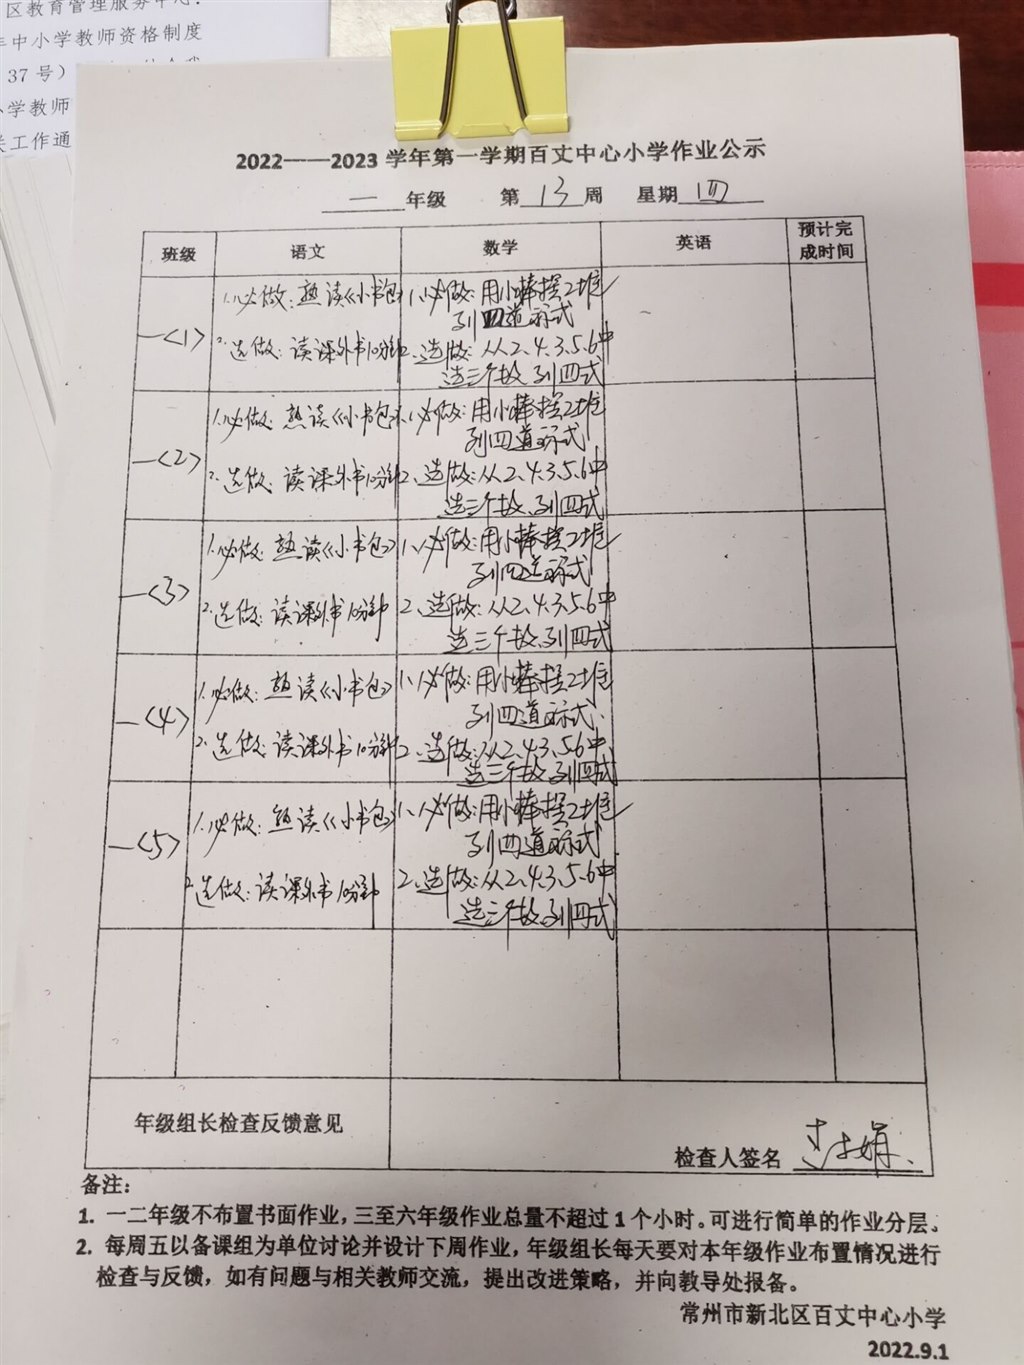 区教育管理服务中心:
年中小学教师资格制度
37号)
小学教师
关工作通
2022——2023 学年第一学期百丈中心小学作业公示
一 年级 第 13 周 星期 四
班级 语文 数学 英语 预计完成时间
一<1>
1.必做:熟读《小书包》
2.选做:读课外书10分钟
1、必做:用小棒摆2堆
列四道算式
2、选做:从2、4、3、5、6中
选三个数,列四式
一<2>
1.必做:熟读《小书包》
2.选做:读课外书10分钟
1、必做:用小棒摆2堆
列四道算式
2、选做:从2、4、3、5、6中
选三个数,列四式
一<3>
1.必做:熟读《小书包》
2.选做:读课外书10分钟
1、必做:用小棒摆2堆
列四道算式
2、选做:从2、4、3、5、6中
选三个数,列四式
一<4>
1.必做:熟读《小书包》
2.选做:读课外书10分钟
1、必做:用小棒摆2堆
列四道算式
2、选做:从2、4、3、5、6中
选三个数,列四式
一<5>
1.必做:熟读《小书包》
2.选做:读课外书10分钟
1、必做:用小棒摆2堆
列四道算式
2、选做:从2、4、3、5、6中
选三个数,列四式
年级组长检查反馈意见
检查人签名
备注:
1. 一二年级不布置书面作业,三至六年级作业总量不超过1个小时。可进行简单的作业分层。
2. 每周五以备课组为单位讨论并设计下周作业,年级组长每天要对本年级作业布置情况进行
检查与反馈,如有问题与相关教师交流,提出改进策略,并向教导处报备。
常州市新北区百丈中心小学
2022.9.1